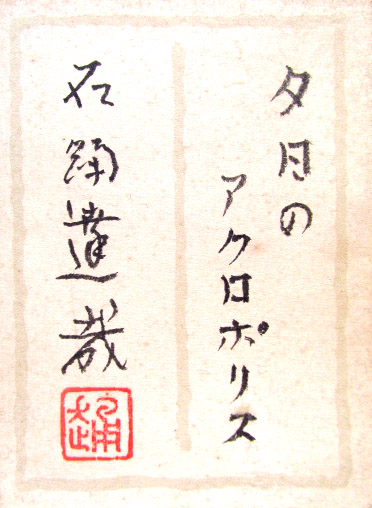 夕日の
アクロポリス
石踊達哉